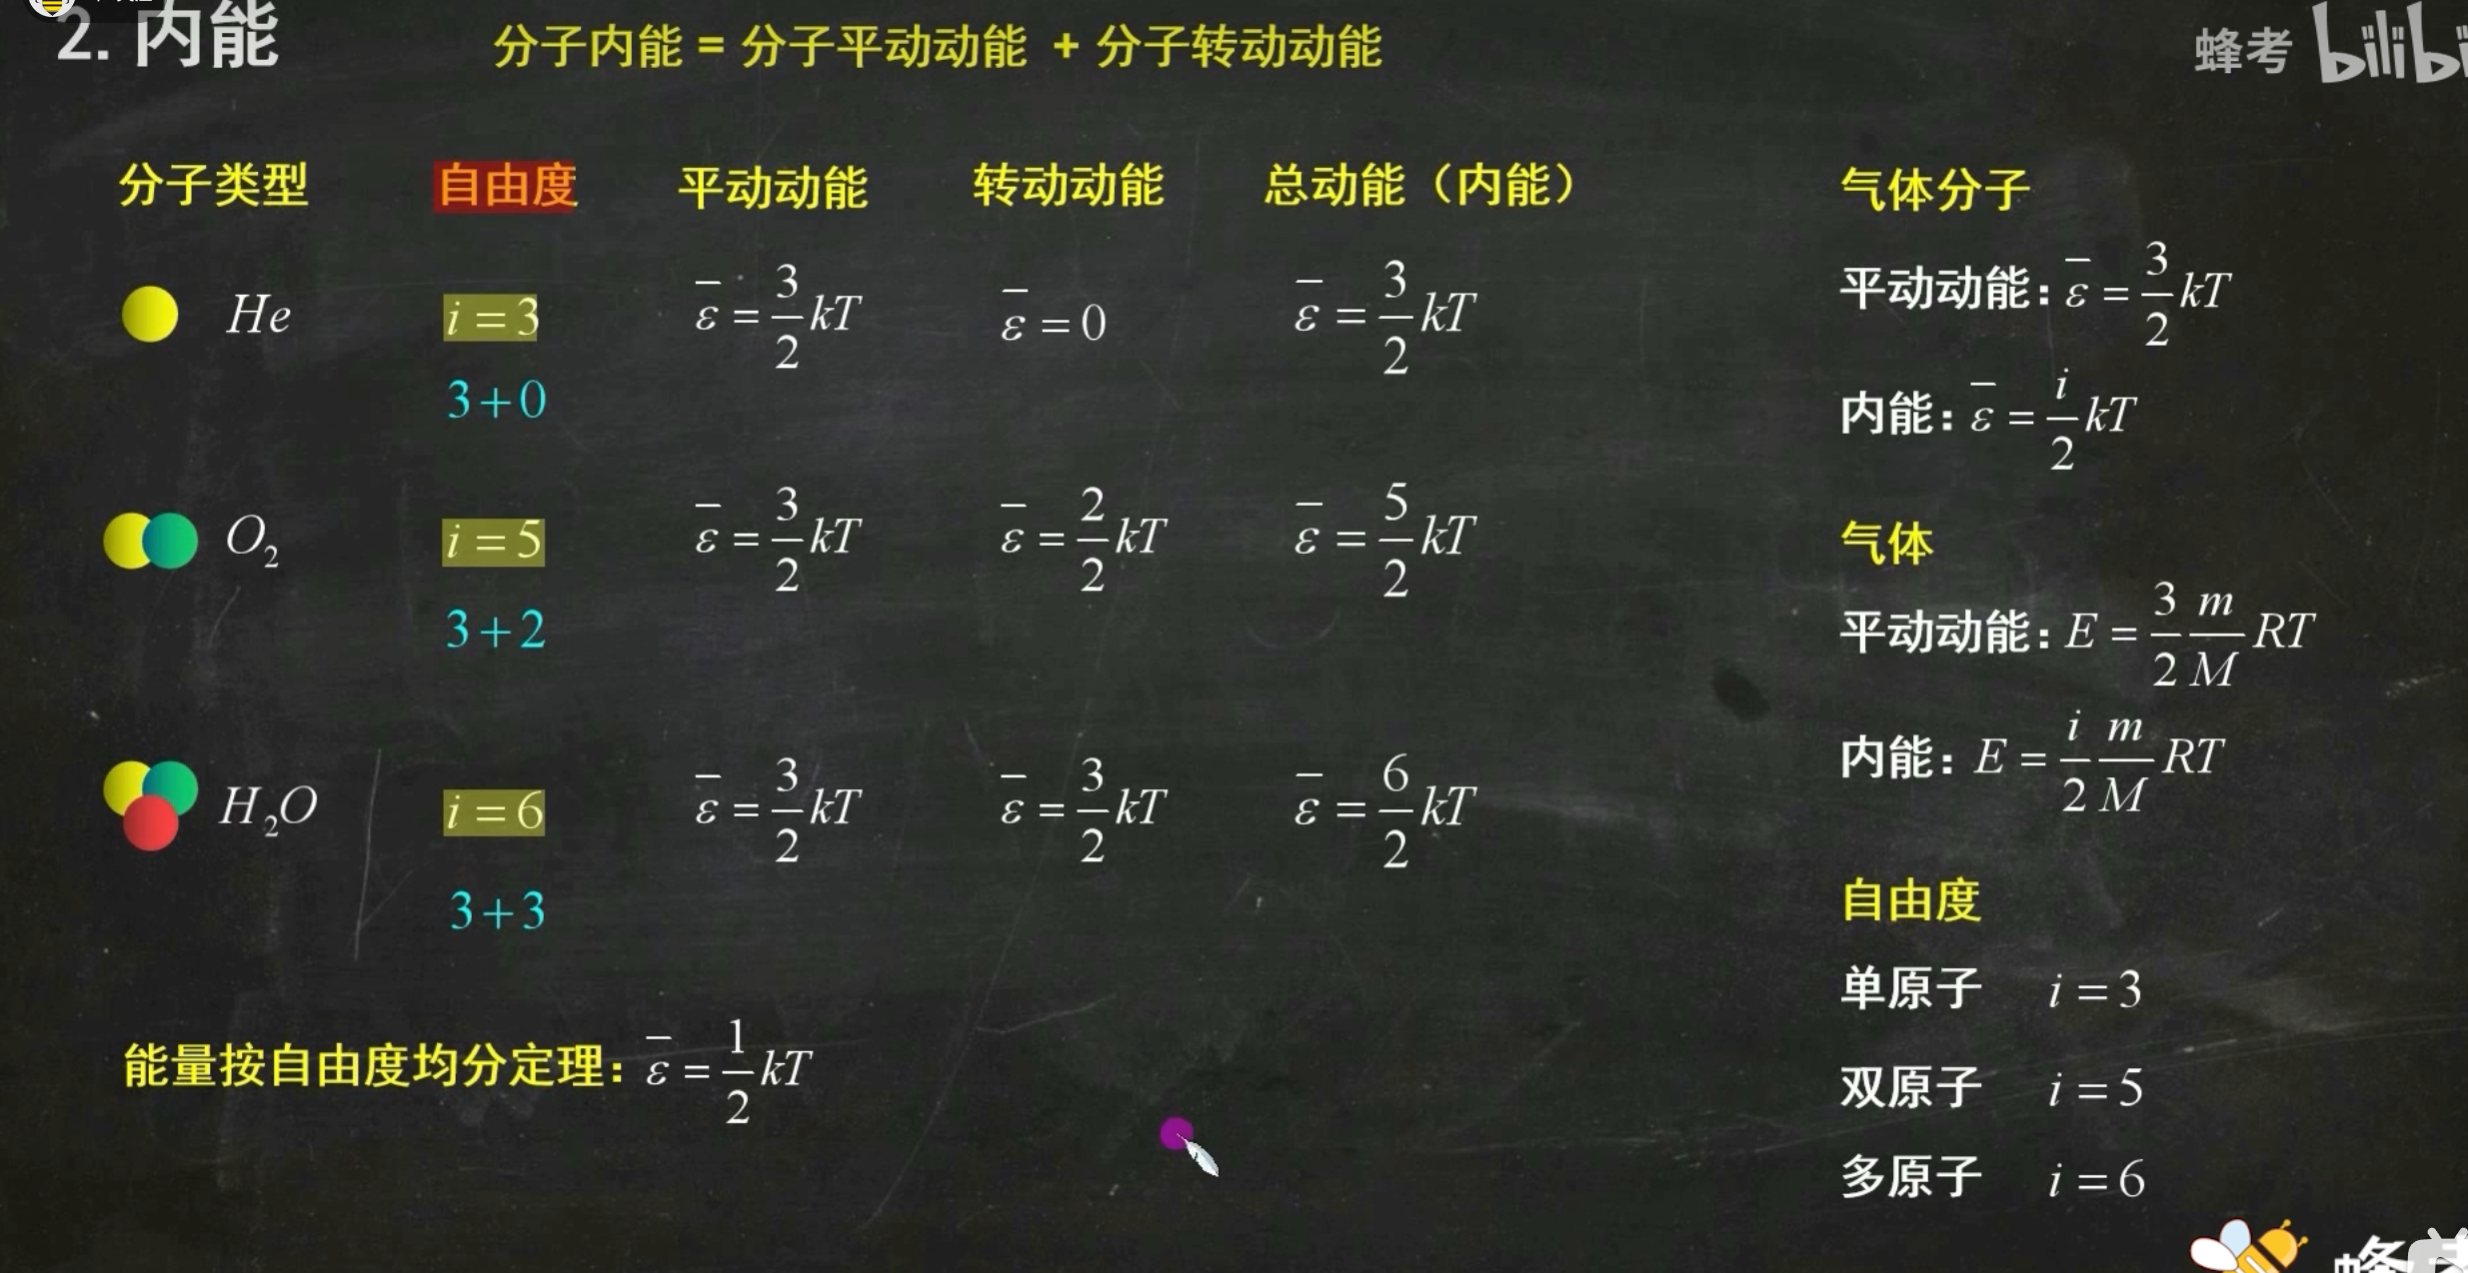 2. 内能
分子内能 = 分子平动动能 + 分子转动动能
蜂考
分子类型 自由度 平动动能 转动动能 总动能（内能）
He i = 3 ε̄ = 3/2 kT ε̄ = 0 ε̄ = 3/2 kT
3+0
O₂ i = 5 ε̄ = 3/2 kT ε̄ = 2/2 kT ε̄ = 5/2 kT
3+2
H₂O i = 6 ε̄ = 3/2 kT ε̄ = 3/2 kT ε̄ = 6/2 kT
3+3
能量按自由度均分定理: ε̄ = 1/2 kT
气体分子
平动动能: ε̄ = 3/2 kT
内能: ε̄ = i/2 kT
气体
平动动能: E = 3/2 m/M RT
内能: E = i/2 m/M RT
自由度
单原子 i = 3
双原子 i = 5
多原子 i = 6